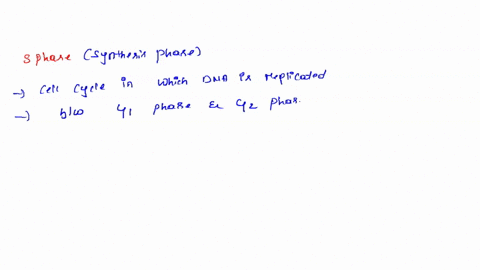 S phase (Synthesis phase)
→ Cell cycle in which DNA is replicated
→ b/w G1 phase & G2 phas.